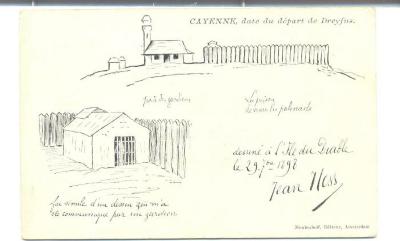 CAYENNE, date du départ de Dreyfus.
poste du gardien
La prison
derrière les palissades
dessiné à l'Ile du Diable
le 29 7bre 1898
Jean Hess
d'un dessin qui m'a
été communiqué par un gardien
Éditeur, Amsterdam